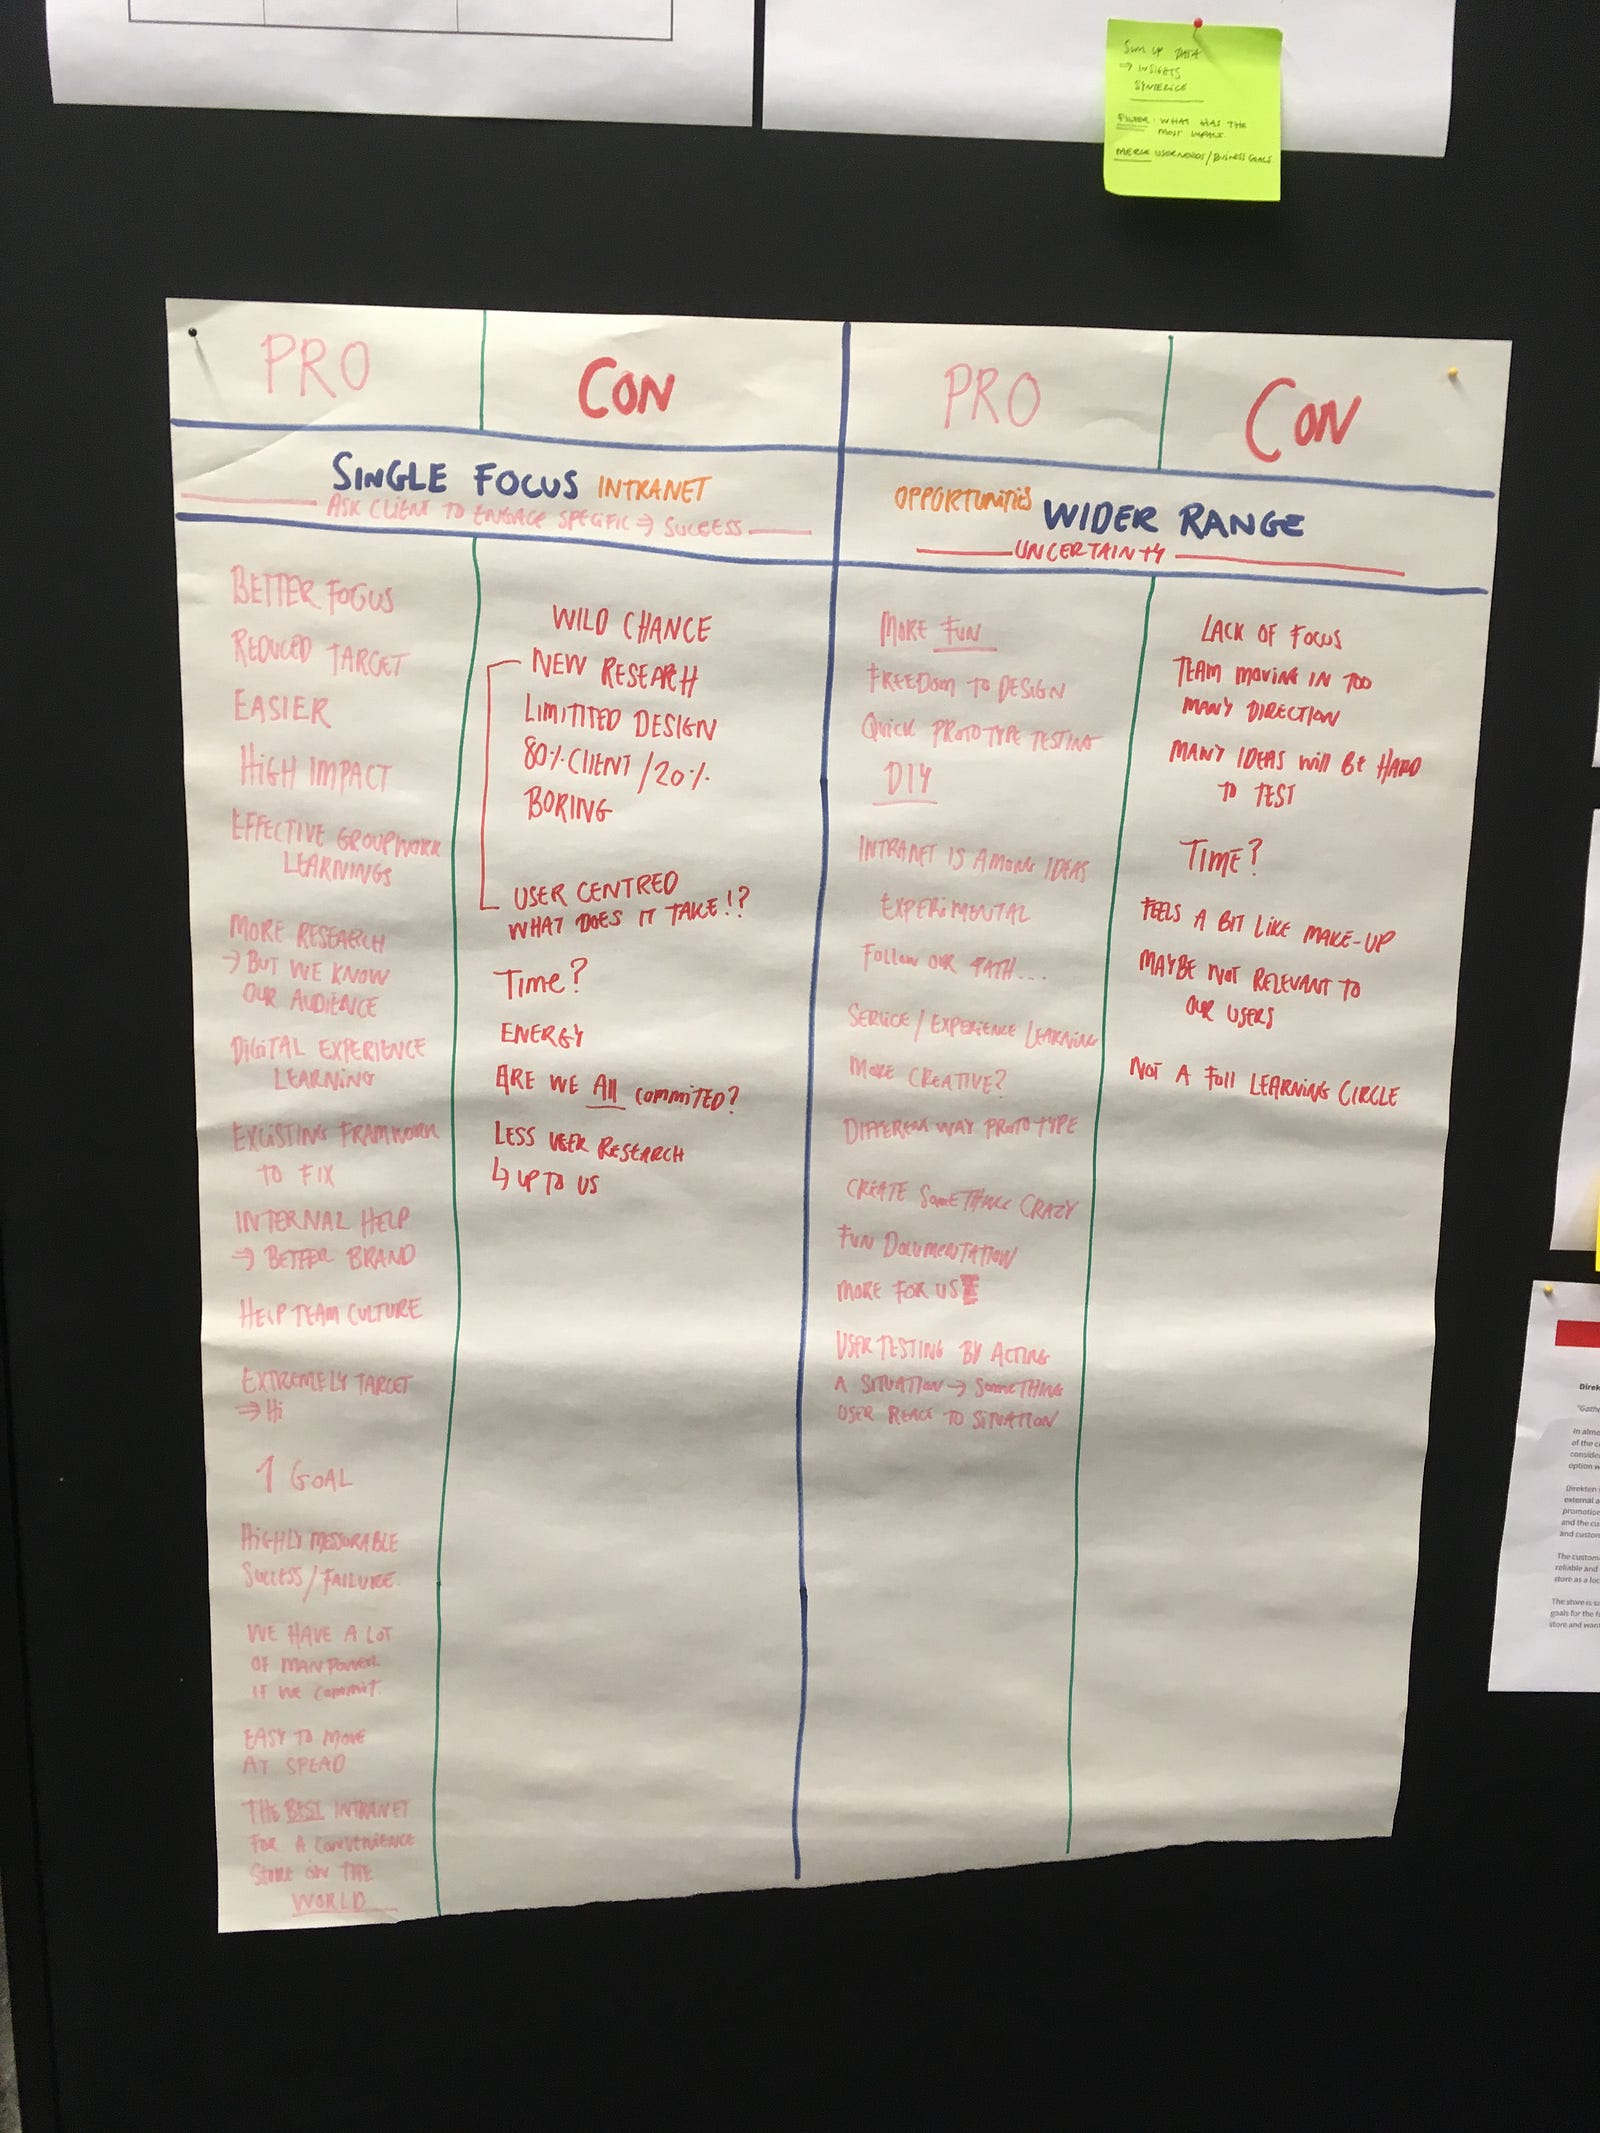 SUM UP DATA
⇒ INSIGHTS
SYNTERICE
FILTER: WHAT HAS THE
MOST IMPACT
MERGE USERNEEDS/BUSINESS GOALS
PRO
CON
PRO
CON
SINGLE FOCUS INTRANET
ASK CLIENT TO ENGAGE SPECIFIC ⇒ SUCCESS
OPPORTUNITIES WIDER RANGE
UNCERTAINTY
BETTER FOCUS
REDUCED TARGET
EASIER
HIGH IMPACT
EFFECTIVE GROUPWORK
LEARNINGS
MORE RESEARCH
→ BUT WE KNOW
OUR AUDIENCE
DIGITAL EXPERIENCE
LEARNING
EXCISTING FRAMWORK
TO FIX
INTERNAL HELP
⇒ BETTER BRAND
HELP TEAM CULTURE
EXTREMELY TARGET
⇒ Hi
1 GOAL
HIGHLY MESSURABLE
SUCCESS / FAILURE.
WE HAVE A LOT
OF MAN POWER
IF WE COMMIT.
EASY TO MOVE
AT SPEAD
THE BEST INTRANET
FOR A CONVENIENCE
STORE ON THE
WORLD
WILD CHANCE
NEW RESEARCH
LIMITITED DESIGN
80% CLIENT / 20%
BORING
USER CENTRED
WHAT DOES IT TAKE!?
TIME?
ENERGY
ARE WE All COMMITED?
LESS USER RESEARCH
↳ UP TO US
MORE FUN
FREEDOM TO DESIGN
QUICK PROTOTYPE TESTING
DIY
INTRANET IS AMONG IDEAS
EXPERIMENTAL
FOLLOW OUR PATH....
SERVICE / EXPERIENCE LEARNING
MORE CREATIVE?
DIFFEREN WAY PROTOTYPE
CREATE SOMETHING CRAZY
FUN DOCUMENTATION
MORE FOR US
USER TESTING BY ACTING
A SITUATION → SOMETHING
USER REACT TO SITUATION
LACK OF FOCUS
TEAM MOVING IN TOO
MANY DIRECTION
MANY IDEAS Will BE HARD
TO TEST
TIME?
FEELS A BIT LIKE MAKE-UP
MAYBE NOT RELEVANT TO
OUR USERS
NOT A FUll LEARNING CIRCLE
Direk
"Gathe
In almo
of the c
conside
option w
Direkten
external a
promotion
and the cu
and custon
The custom
reliable and
store as a loc
The store is s
goals for the f
store and wan